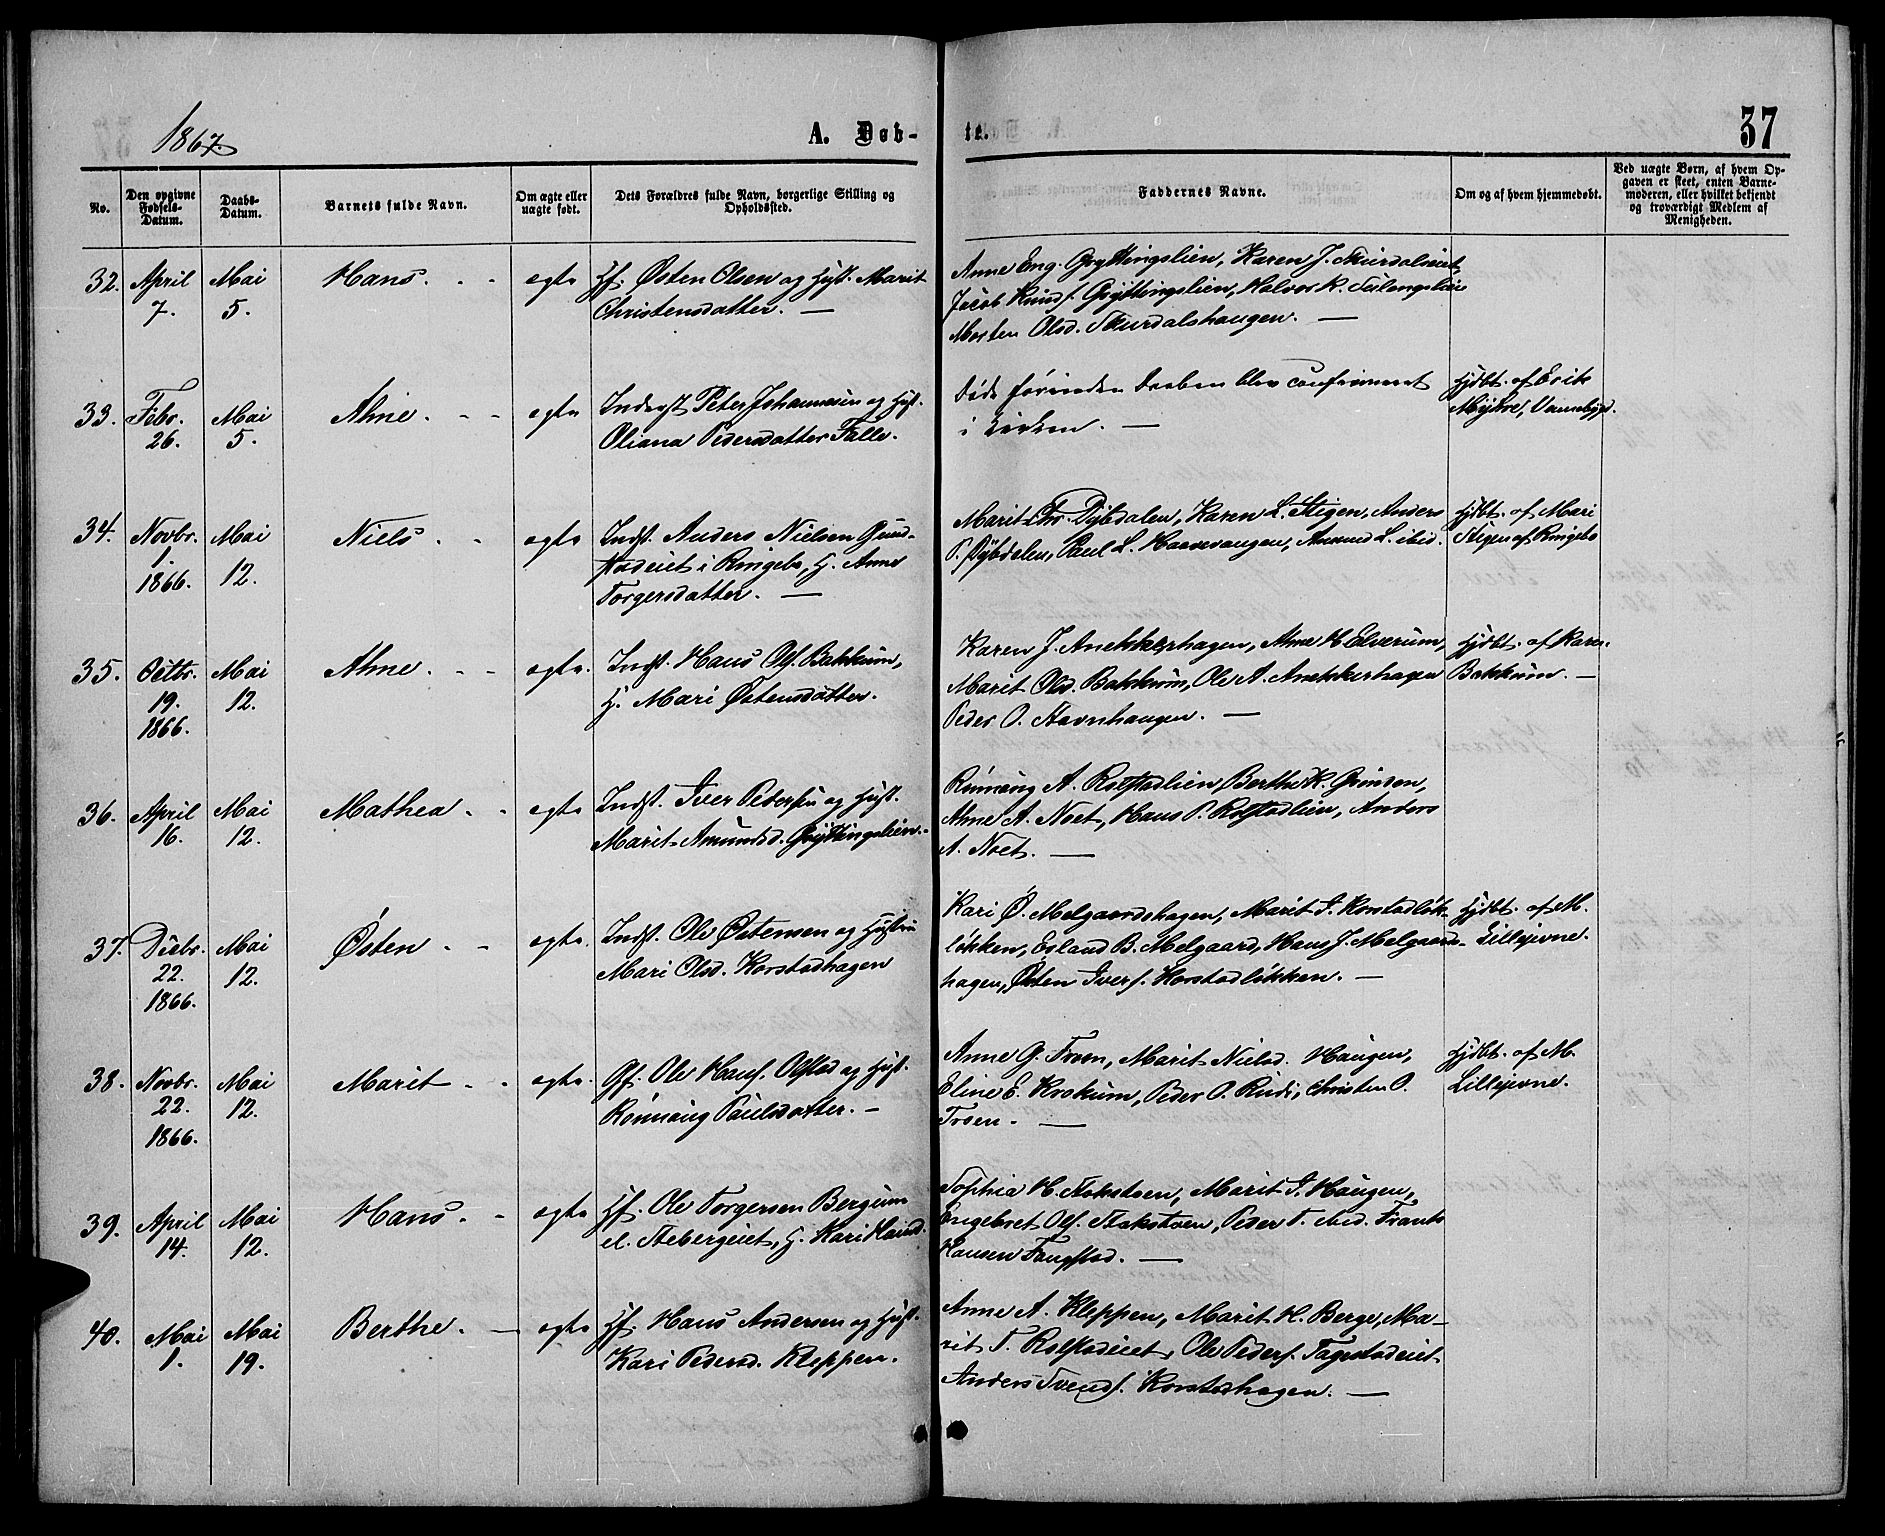 1867.
A. Døb-
te.
37
No.
Den opgivne Fødsels-Datum.
Daabs-Datum.
Barnets fulde Navn.
Om ægte eller uægte født.
Dets Forældres fulde Navn, borgerlige Stilling og Opholdssted.
Faddernes Navne.
Om og af hvem hjemmedøbt.
Ved uægte Børn, af hvem Op-
gaven er skeet, enten Barne-
moderen, eller hvilket bekjendt
og troværdigt Medlem af
Menigheden.
32. April 7. Mai 5. Hans. - - egte
Hf. Østen Olsen og Hust. Marit
Christensdatter. —
Anne Eng. Gryttingslien, Karen J.
Jacob Knuds. Gryttingslien, Halvor K.
Morten Olsd. Skurdalshaugen. —
33. Febr. 26. Mai 5. Anne. - - egte
Inderst Peter Johannesen og Hust.
Oliana Pedersdatter Falle.
Døde forinden Daaben blev confirmeret
i Kirken. —
Hjdbt. af Erik
Mykre, Vennebygd.
34. Novbr. 1. 1866. Mai 12. Niels. - egte
Indst. Anders Nielsen Gund-
stadeiet i Ringebo, H. Anne
Torgersdatter. —
Marit Chr. Dybdalen, Karen L. Stigen, Anders
P. Dybdalen, Paul L. Haavevangen, Amund L. ibid.
Hjdbt. af Mari
Stigen af Ringebo
35. Octbr. 19. 1866. Mai 12. Anne. - - egte.
Indst. Hans Ols. Bakkum,
H. Mari Østensdatter.
Karen J. Anekkerhagen, Anne H. Elverum,
Marit Olsd. Bakkum, Ole A. Anekkerhagen
Peder O. Stavnhaugen. —
Hjdbt. af Karen
Bakkum. —
36. April 16. Mai 12. Mathea. - egte
Indst. Iver Pedersen og Hust.
Marit Amundsd. Gryttingslien.
Rønnaug A. Rolstadlien, Berthe K.
Anne A. Noet, Hans P. Rolstadlien, Anders
A. Noet. —
37. Decbr. 22. 1866. Mai 12. Østen - - egte.
Indst. Ole Østensen og Hustru
Mari Olsd. Korstadhagen
Kari Ø. Melgaardshagen, Marit I. Korstadløk-
løkken, Erland B. Melgaard, Hans J. Melgaards-
hagen, Østen Ivers. Korstadløkken. —
Hjdbt. af M.
Lillejevne.
38. Novbr. 22. 1866. Mai 12. Marit - - egte.
Gf. Ole Hans. Olstad og Hust.
Rønnaug Paulsdatter. —
Anne G. Troen, Marit Nielsd. Haugen,
Eline E. Krokum, Peder O. Rudi, Christen O.
Troen. —
Hjdbt. af M.
Lillejevne.
39. April 14. Mai 12. Hans. - egte
Hf. Ole Torgersen Bergum
el. Stebergeiet, H. Kari Hansd.
Sophia H. Stokstoen, Marit I. Haugen,
Engebret Ols. Stokstoen, Peder T. ibid. Frants
Hansen Fangstad. —
40. Mai 1. Mai 19. Berthe. — egte
Hf. Hans Andersen og Hust.
Kari Pedersd. Kleppen.
Anne A. Kleppen, Marit H. Berge, Ma-
rit T. Rolstadeiet, Ole Peders. Fagstadeiet
Anders Svends. Korstadhagen. —